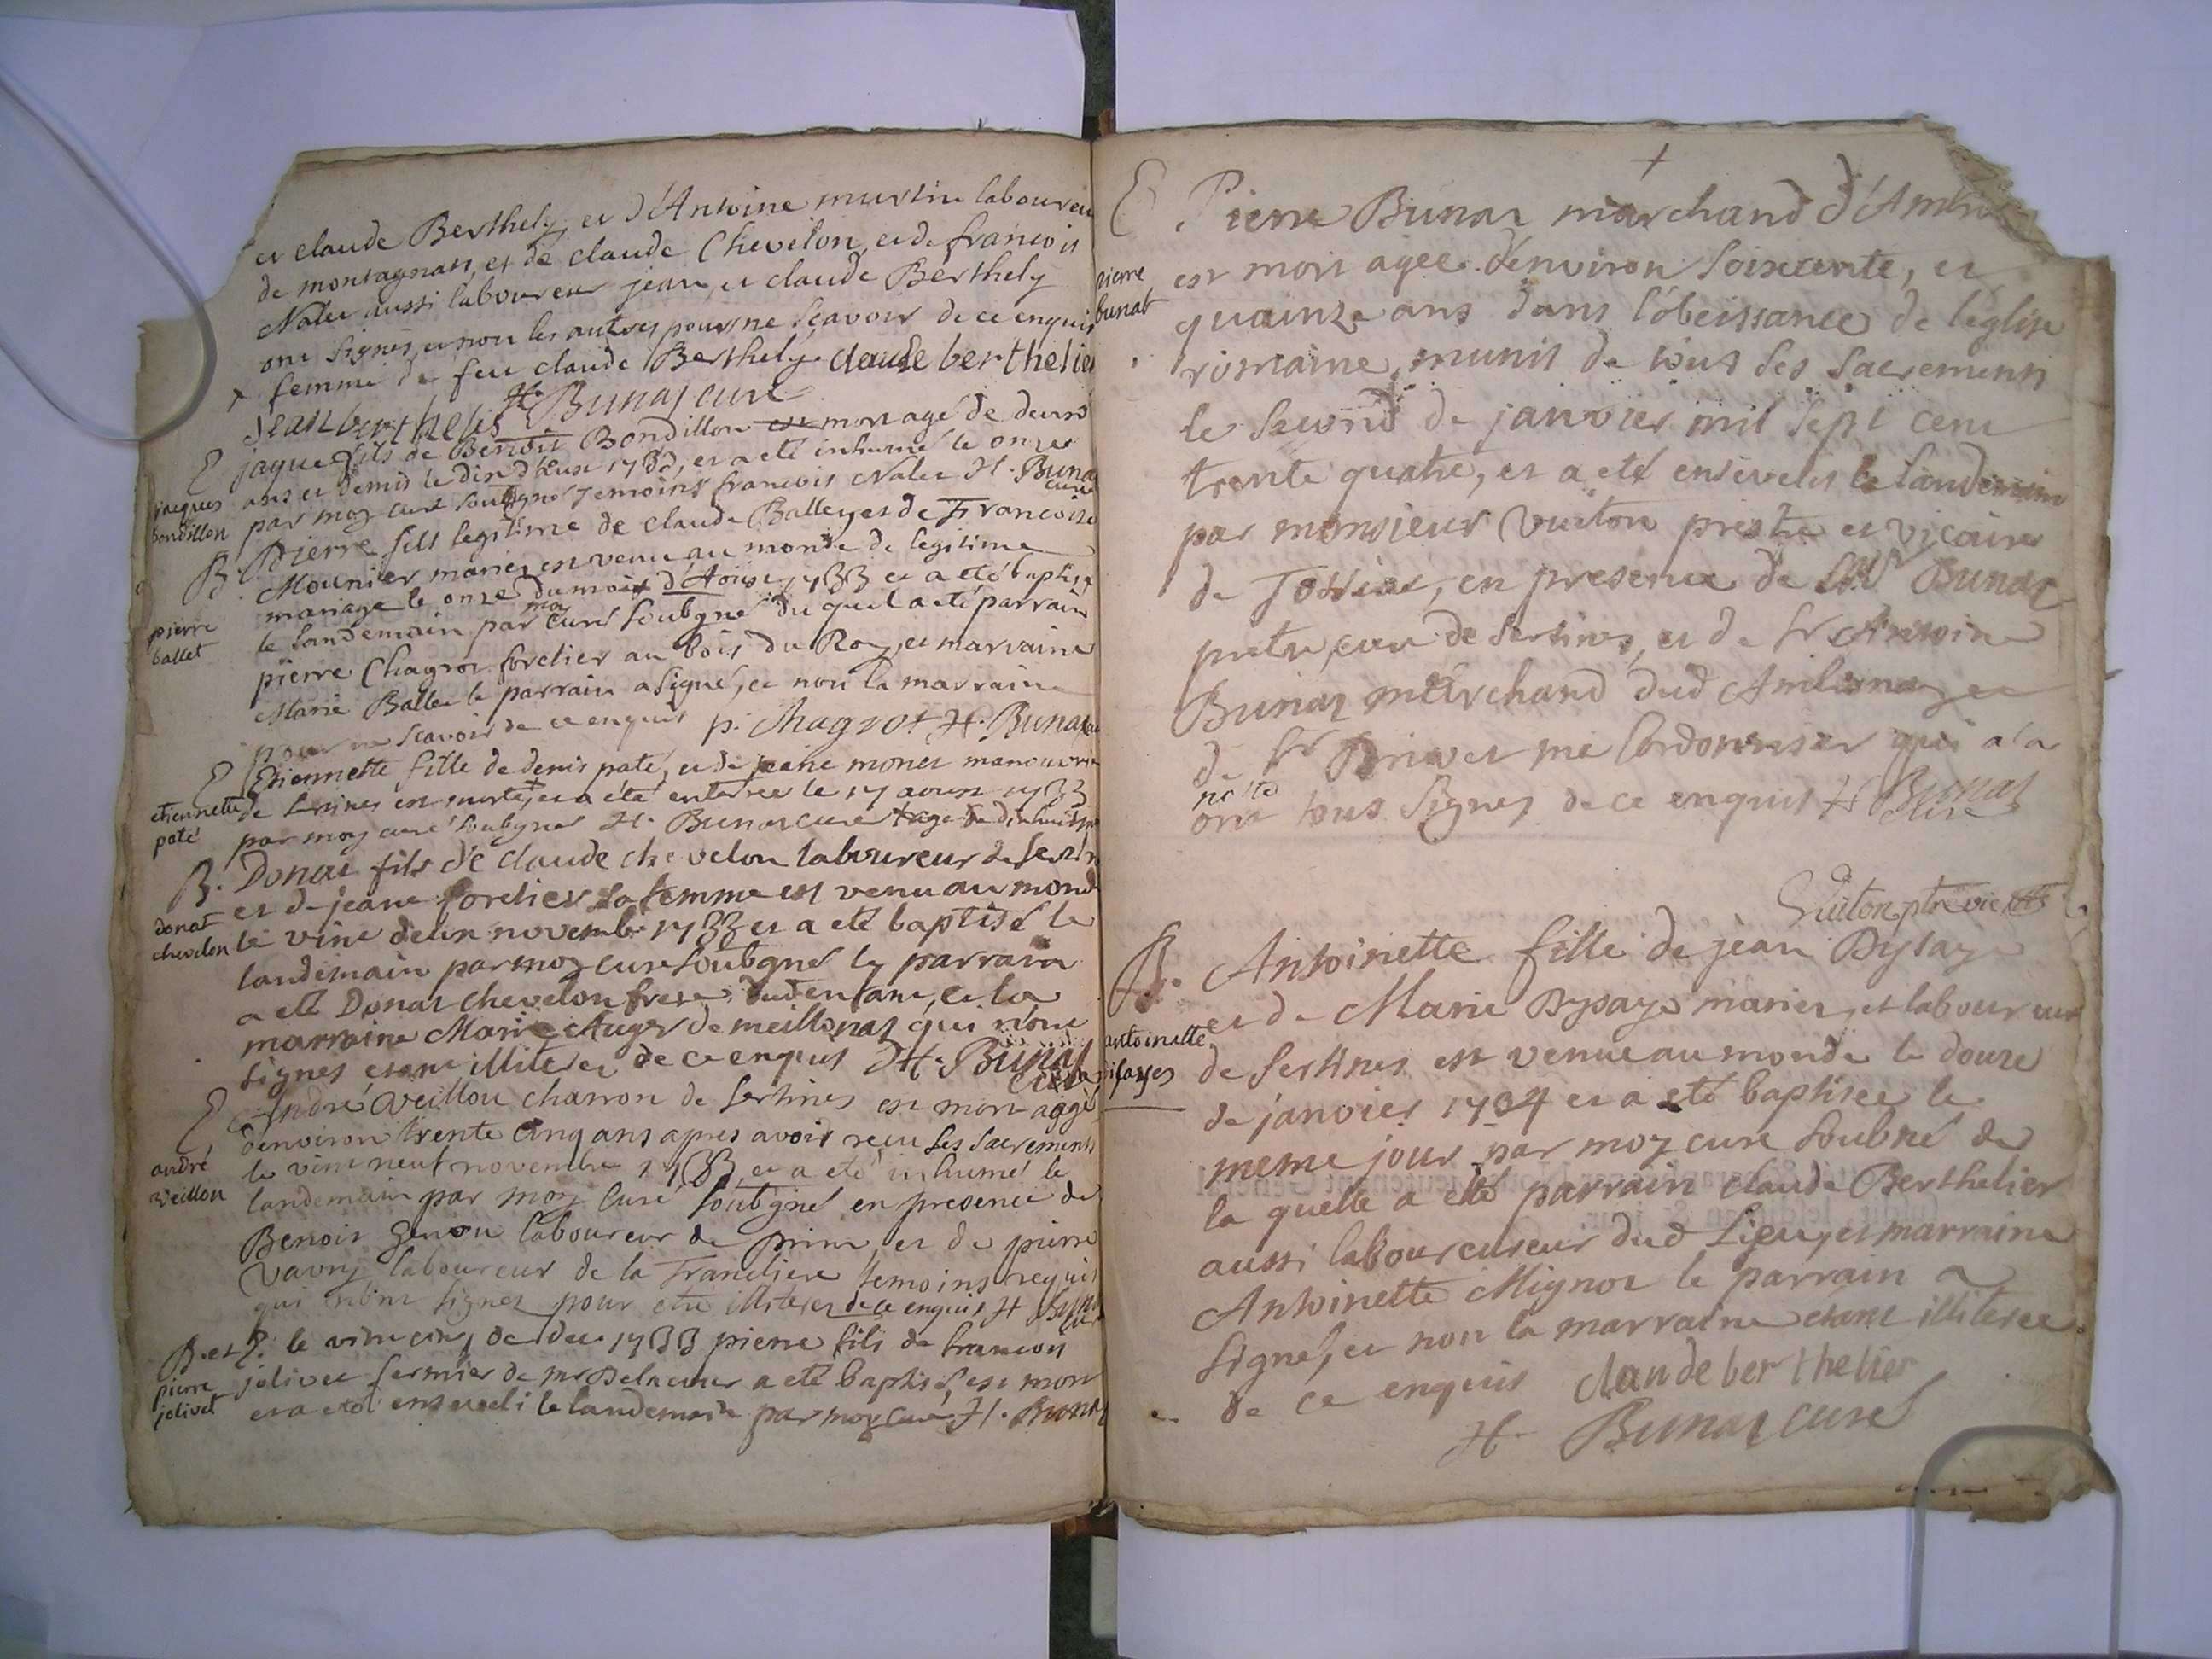 et claude Berthely, et d'Antoine murtin laboureu
de montagnatt, et de claude Chevelon, et de francois
Nalet aussi laboureur jean, et claude Berthely
ont signés, et non les autres pour ne sçavoir de ce enquis
+ femme de feu claude Berthely claude berthelier
jean berthelis H. Bunat curé
E jaque fils de Benoit Bondillon est mort agé de deux
jacques ans et demis le dix d'Aust 1733, et a eté inhumé le onze
bondillon par moy curé soubsigné temoins francois Nalet H. Buna
curé
B. Pierre fils legitime de claude Ballet, et de Francoise
Mounier mariés est venu au monde de legitime
mariage le onze du mois d'Aoust 1733 et a eté baptisé
pierre ballet
le landemain par moy curé soubgné du quel a eté parrain
pierre Chagrot foretier au bois du Roy, et marraine
Marie Ballet le parrain a signé, et non la marraine
pour ne scavoir de ce enquis p. Chagrot H. Bunat cu
E Etiennette fille de denis paté, et de jeane monet manouvrie
etiennette paté
de sertines est morte, et a été enterrée le 17 aoust 1733
par moy curé soubsigné H. Bunat curé +age de dixhuit
B. Donat fils de claude chevelon laboureur de serti
et de jeane foretier sa femme est venu au mond
donat chevelon
le vint deux novembre 1733 et a eté baptisé le
landemain par moy curé soubgné le parrain
a eté Donat chevelon frere dud enfant, et la
marraine Marie Auger de meillonat qui n'ont
signes etant illiteré de ce enquis H. Bunat
curé
E André Veillon charron de sertines est mort aggé
denviron trente cinq ans apres avoir recu ses sacrements
andré veillon
le vint neuf novembre 1733, et a eté inhumé le
landemain par moy curé soubgné en presence de
Benoit Genou laboureur de Prin, et de pierre
Vavry laboureur de la Trancliere temoins requis
qui n'ont signez pour etre illiterés de ce enquis H Buna
B. et E. le vint cinq de dec 1733 pierre fils de francois
pierre jolivet
jolivet fermier de mr Delacour a eté baptisé, est mort
et a eté enseveli le landemain par moy curé H. Bunat
+
E Pierre Bunat marchand d'Ambr
pierre bunat
est mort agee d'environ soixcente, et
quainze ans dans l'obeissance de l'eglise
romaine, munit de tous ses sacrements
le second de janvier mil sept cent
trente quatre, et a eté ensevelit le landemain
par monsieur Vuiton prestre et vicaire
de Tossiat, en presence de Mr Bunat
pretre, curé de sertines, et de sr Antoine
Bunat marchand dud Ambronay et
de sr Brivet me Cordonnier qui a la
note
ont tous signez de ce enquis H Bunat
curé
Vuiton ptre vic
B. Antoinette fille de jean Pysaye
et de Marie Pysaye mariés, et laboureur
antoinette pisayes
de sertines est venue au monde le douze
de janvier 1734 et a eté baptisee le
meme jour par moy curé soubné de
la quelle a eté parrain claude Berthelier
aussi laboureureur dud Lieu, et marraine
Antoinette Mignot le parrain a
signé, et non la marraine etant illiteree
de ce enquis claude berthelier
H. Bunat curé